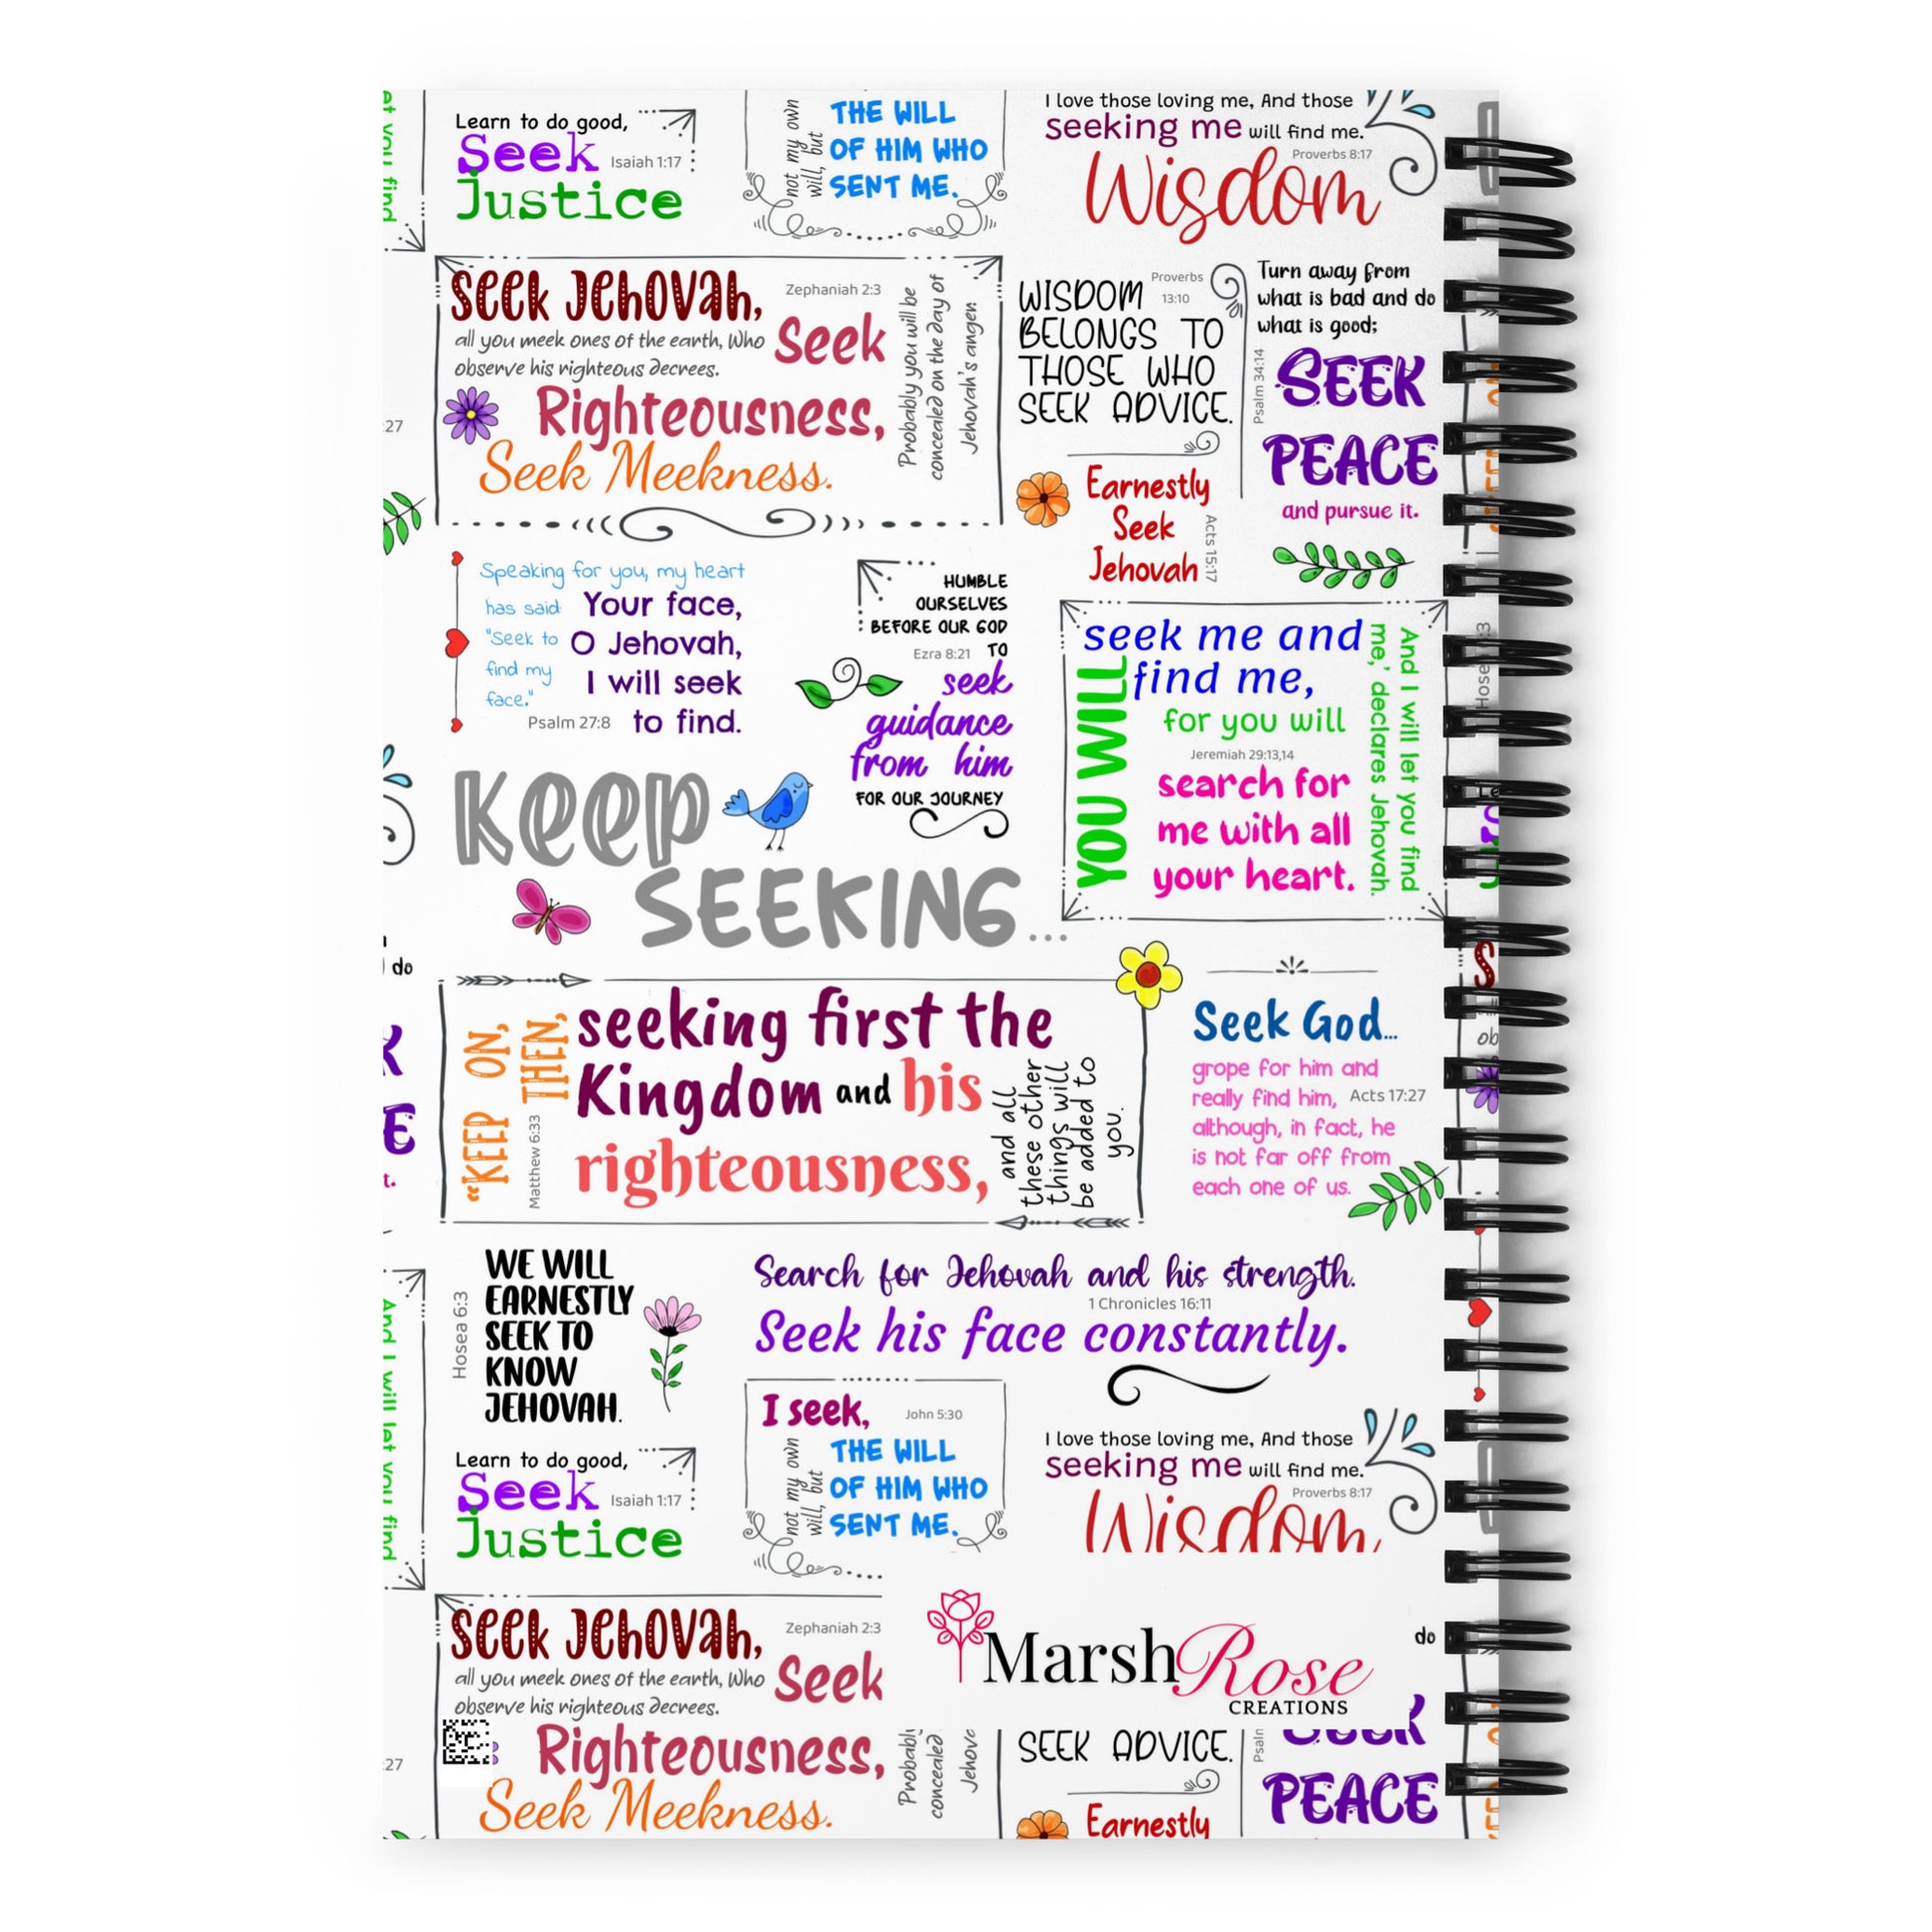 et you find
Learn to do good,
Seek
Isaiah 1:17
Justice
not my own
will, but
THE WILL
OF HIM WHO
SENT ME.
I love those loving me, And those
seeking me will find me.
Proverbs 8:17
Wisdom
Seek Jehovah,
Zephaniah 2:3
all you meek ones of the earth, Who
observe his righteous decrees.
Seek
Righteousness,
Seek Meekness.
Probably you will be
concealed on the day of
Jehovah's anger.
WISDOM
Proverbs
13:10
BELONGS TO
THOSE WHO
SEEK ADVICE.
Turn away from
what is bad and do
what is good;
Psalm 34:14
SEEK
PEACE
and pursue it.
:27
Earnestly
Seek
Jehovah
Acts 15:17
Speaking for you, my heart
has said:
"Seek to
find my
face."
Your face,
O Jehovah,
I will seek
to find.
Psalm 27:8
HUMBLE
OURSELVES
BEFORE OUR GOD
Ezra 8:21 TO
seek
guidance
from him
FOR OUR JOURNEY
YOU WILL
seek me and
find me,
for you will
Jeremiah 29:13,14
search for
me with all
your heart.
And I will let you find
me,' declares Jehovah.
Keep
SEEKING...
do
"KEEP ON,
THEN,
Matthew 6:33
seeking first the
Kingdom and his
righteousness,
and all
these other
things will
be added to
you.
Seek God...
grope for him and
really find him, Acts 17:27
although, in fact, he
is not far off from
each one of us.
Hosea 6:3
WE WILL
EARNESTLY
SEEK TO
KNOW
JEHOVAH.
Search for Jehovah and his strength.
1 Chronicles 16:11
Seek his face constantly.
And I will let you find
Learn to do good,
Seek
Isaiah 1:17
Justice
I seek,
John 5:30
not my own
will, but
THE WILL
OF HIM WHO
SENT ME.
I love those loving me, And those
seeking me will find me.
Proverbs 8:17
Wisdom
Seek Jehovah,
Zephaniah 2:3
all you meek ones of the earth, Who
observe his righteous decrees.
Seek
Righteousness,
Seek Meekness.
Probabl
concealed
Jehov
MarshRose
CREATIONS
do
SEEK ADVICE.
Psaln
SEEK
PEACE
:27
Earnestly